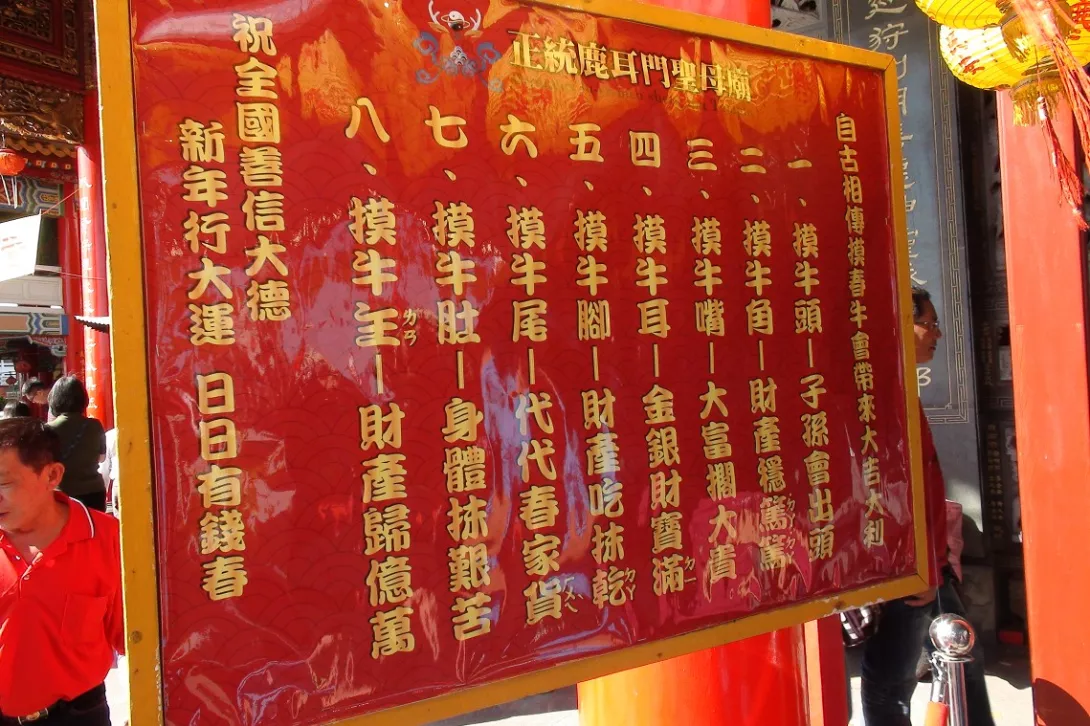 正統鹿耳門聖母廟
自古相傳摸春牛會帶來大吉大利
一、摸牛頭–子孫會出頭
二、摸牛角–財產穩篤篤
三、摸牛嘴–大富擱大貴
四、摸牛耳–金銀財寶滿
五、摸牛腳–財產吃抹乾
六、摸牛尾–代代春家貨
七、摸牛肚–身體抹艱苦
八、摸牛王–財產歸億萬
祝全國善信大德
新年行大運 日日有錢春